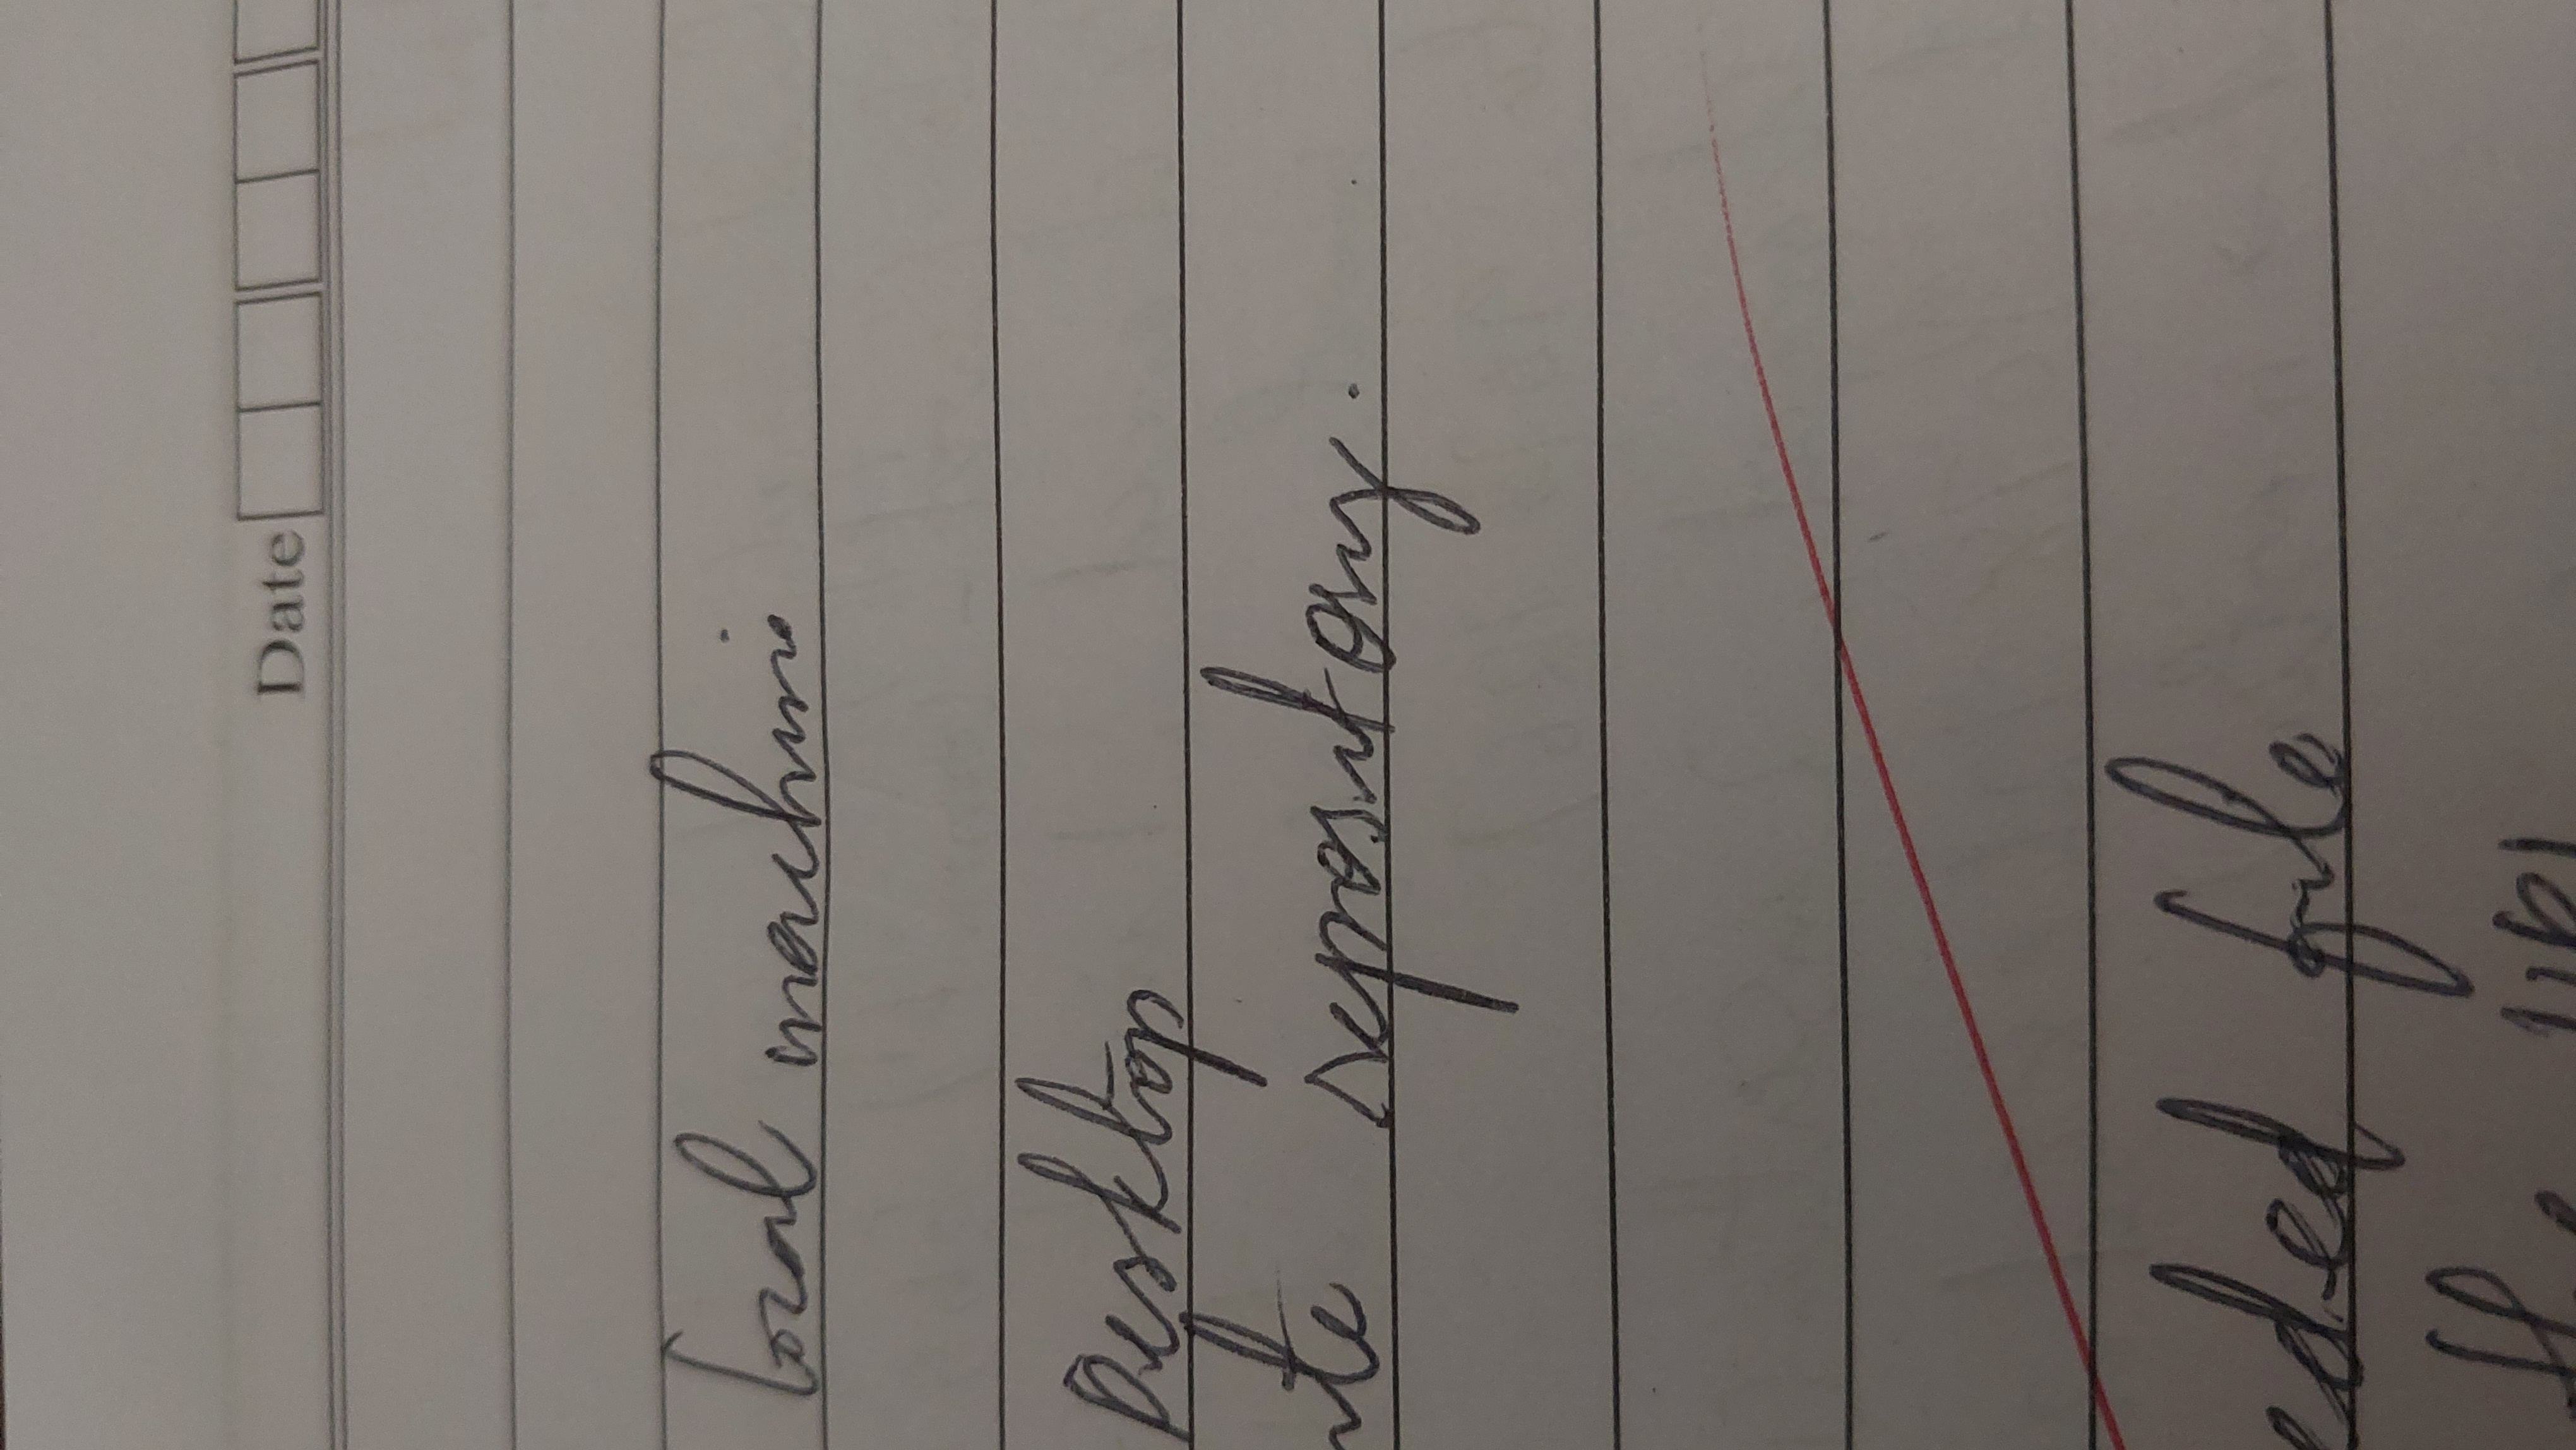 Date
local machine
Desktop
repository.
eded file
the URL